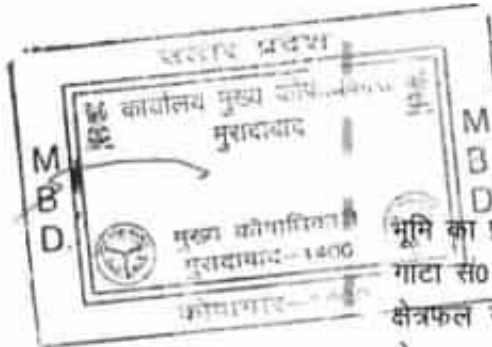 उत्तर प्रदेश
कार्यालय मुख्य कोषाधिकारी
मुरादाबाद
M
B
D
M
B
D
मुख्य कोषाधिकारी
मुरादाबाद-1400
कोषागार-
भूमि का
गाटा सं0
क्षेत्रफल